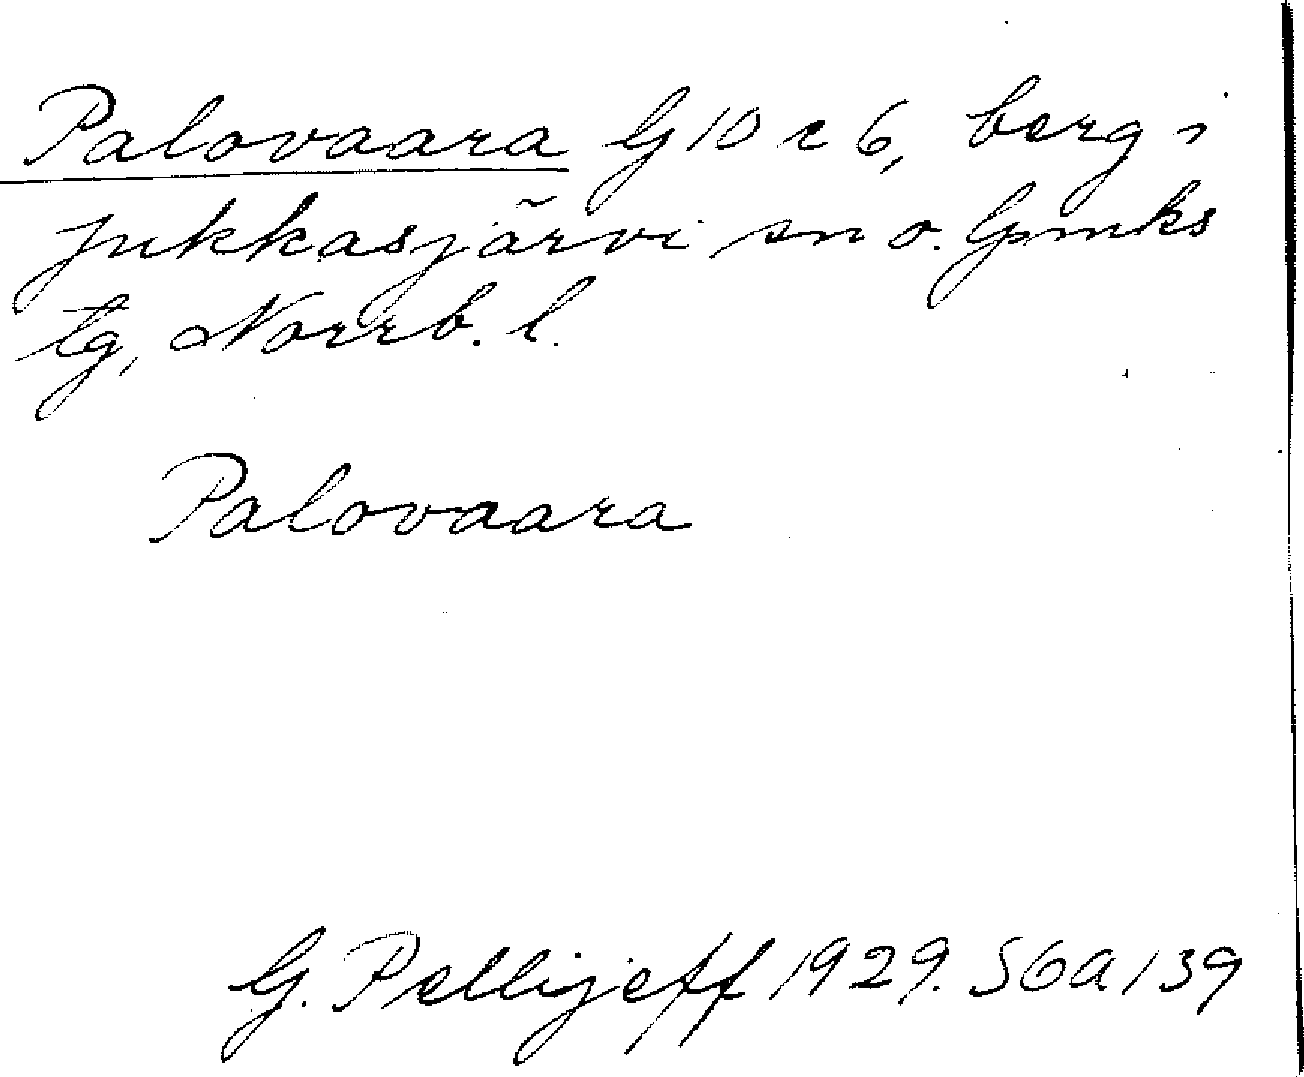 Palovaara G 10 c 6, berg i
Jukkasjärvi sn o. Gmks
tg, Norrb. l.
Palovaara
G. Pellijeff 1929. S6a139